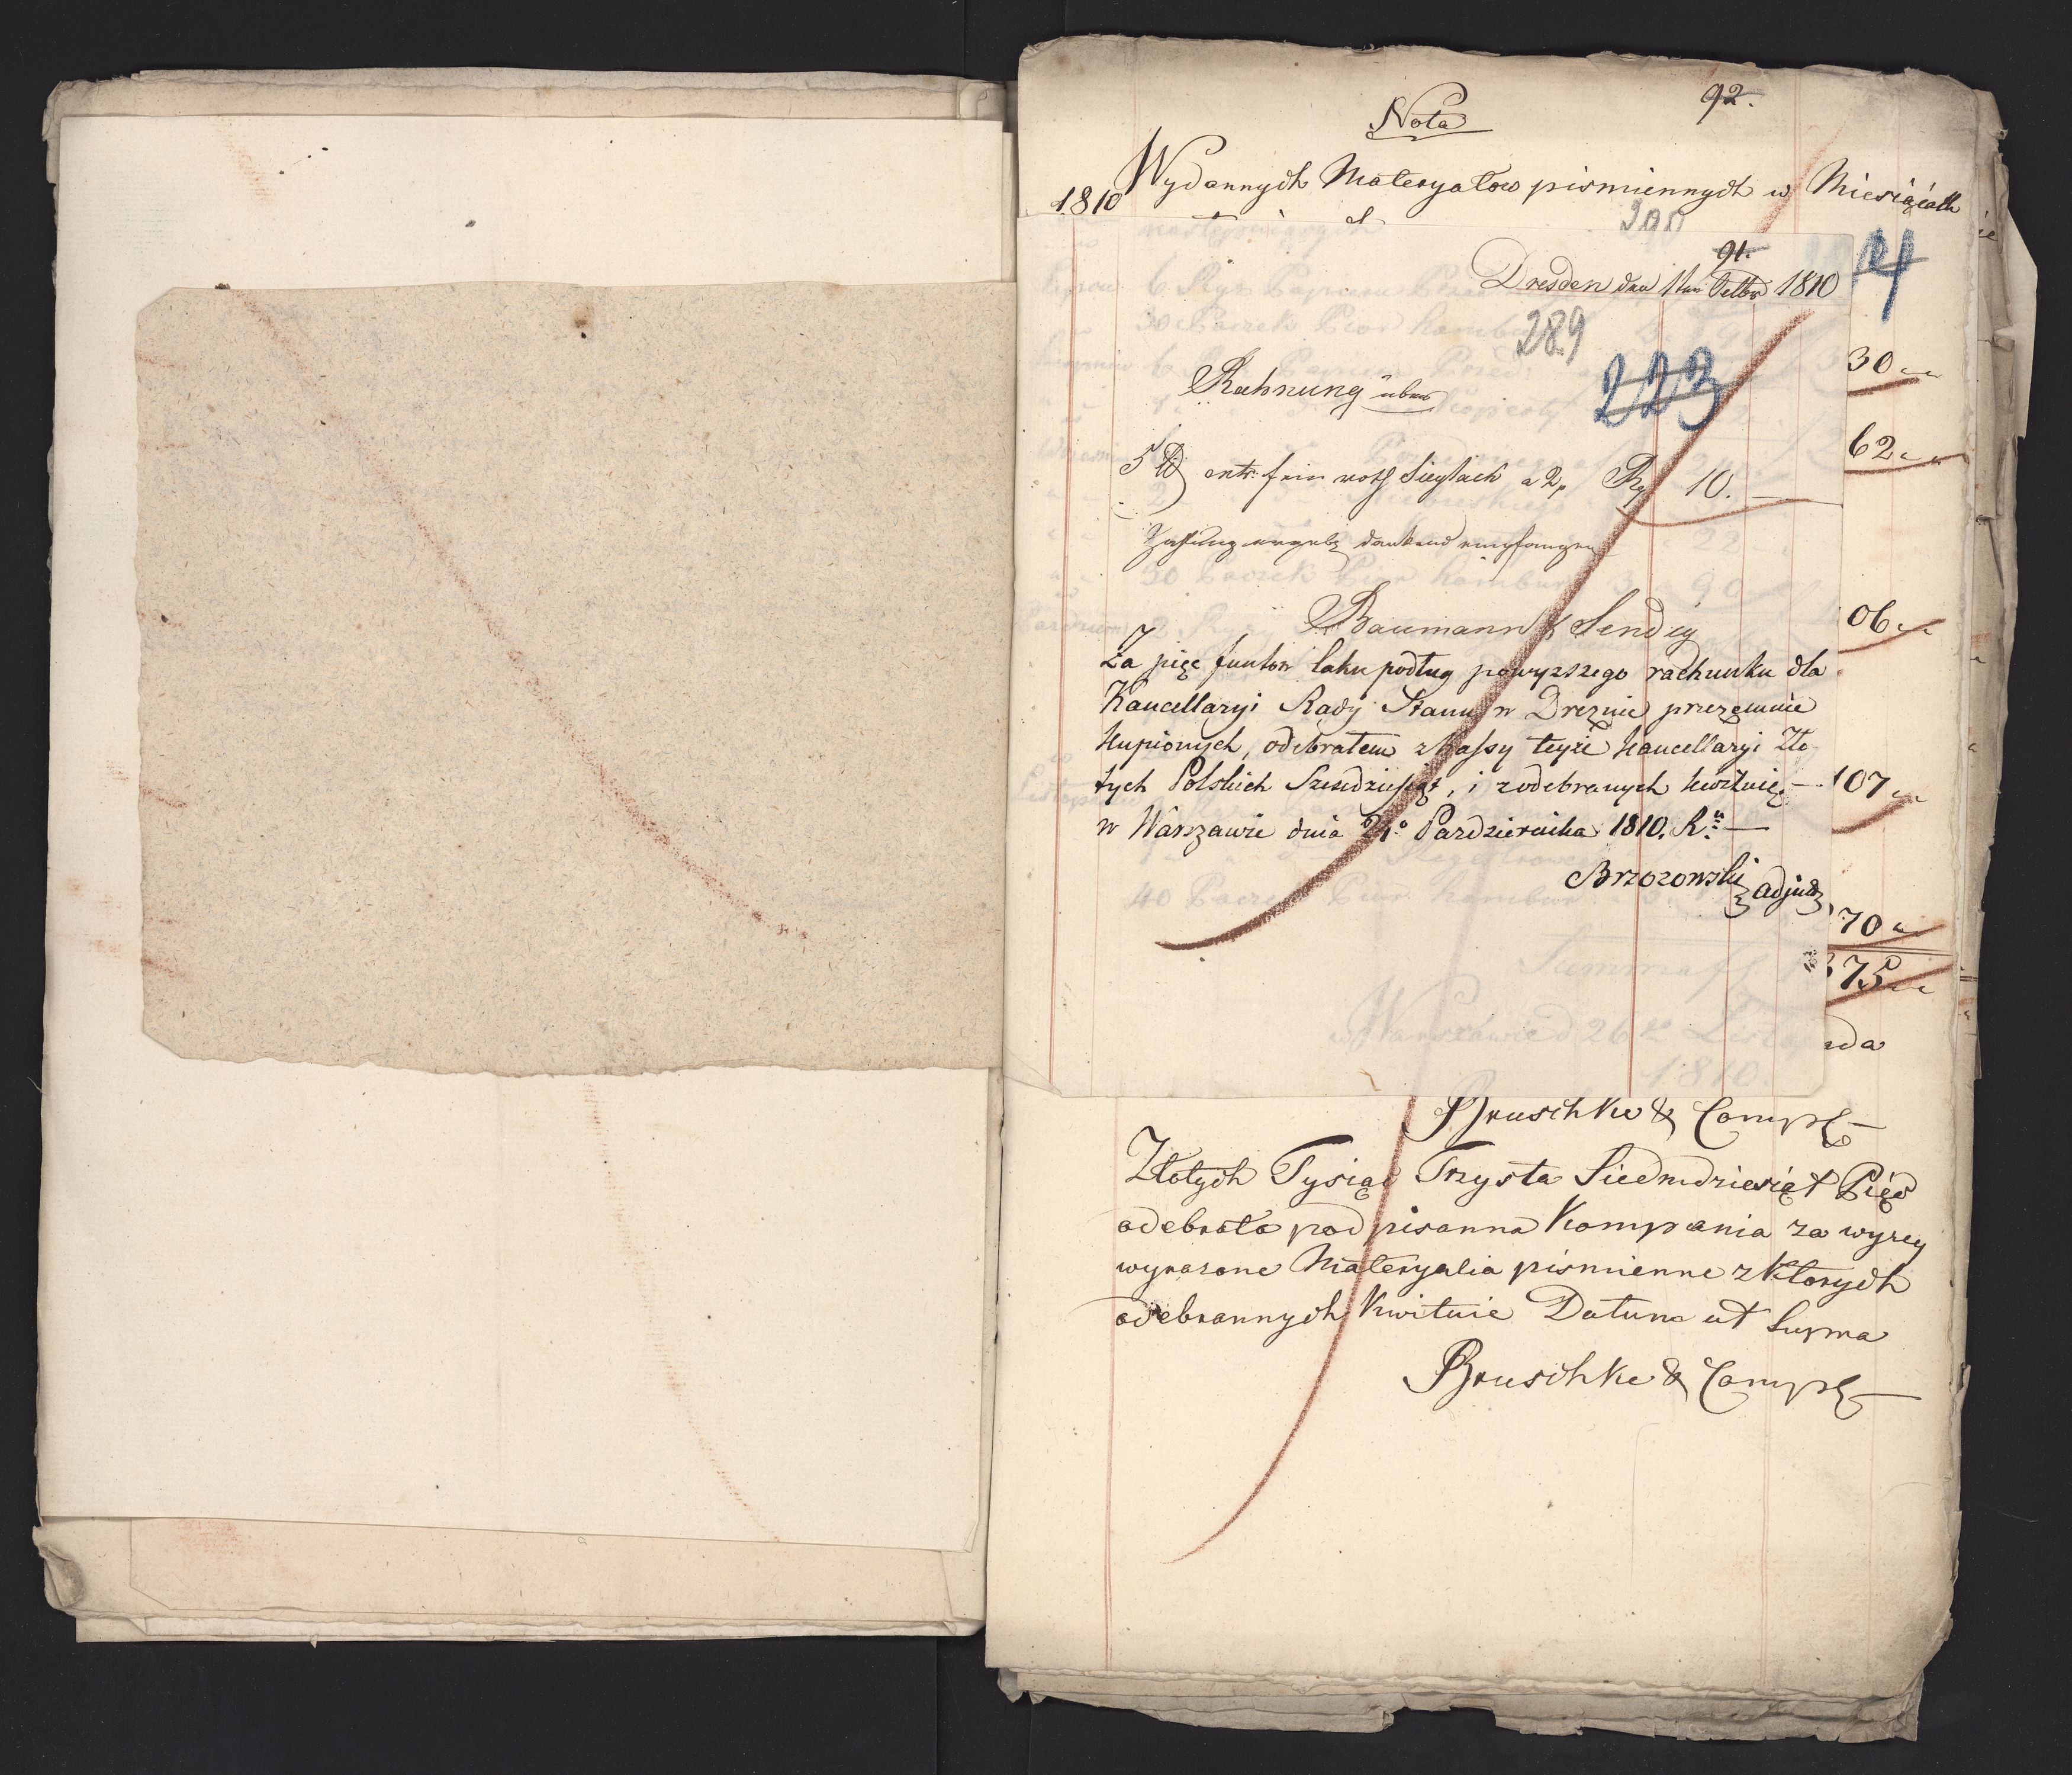 92.
Nota
Wydannych Materyałow pismiennych w Miesiącach
1810
91.
Dresden den 1ten Octbr 1810
24
289
223
30
Rechnung über
62
5 ℔ extr: fein roth Sieglack a 2 Rt 10. —
Zahlung dankend empfangen
Baumann & Sendig
06
Za pięc funtow laku podług powyższego rachunku dla
Kancellaryi Rady Stanu w Dreznie przezemnie
kupionych, odebrałem z kassy teyże kancellaryi Zło
tych Polskich Szescdziesiąt, i z odebranych kwituię —
107
w Warszawie dnia 21o Pazdziernika 1810. R.
Brzozowski adjunkt
70
375
Bruschke & Comp
Złotych Tysiąc Trzysta Siedmdziesiąt Pięc
odebrała podpisanna Kompania za wyzey
wyrazone Materyalia pismienne z Ktorych
odebrannych Kwituie Datum ut Supra
Bruschke & Comp